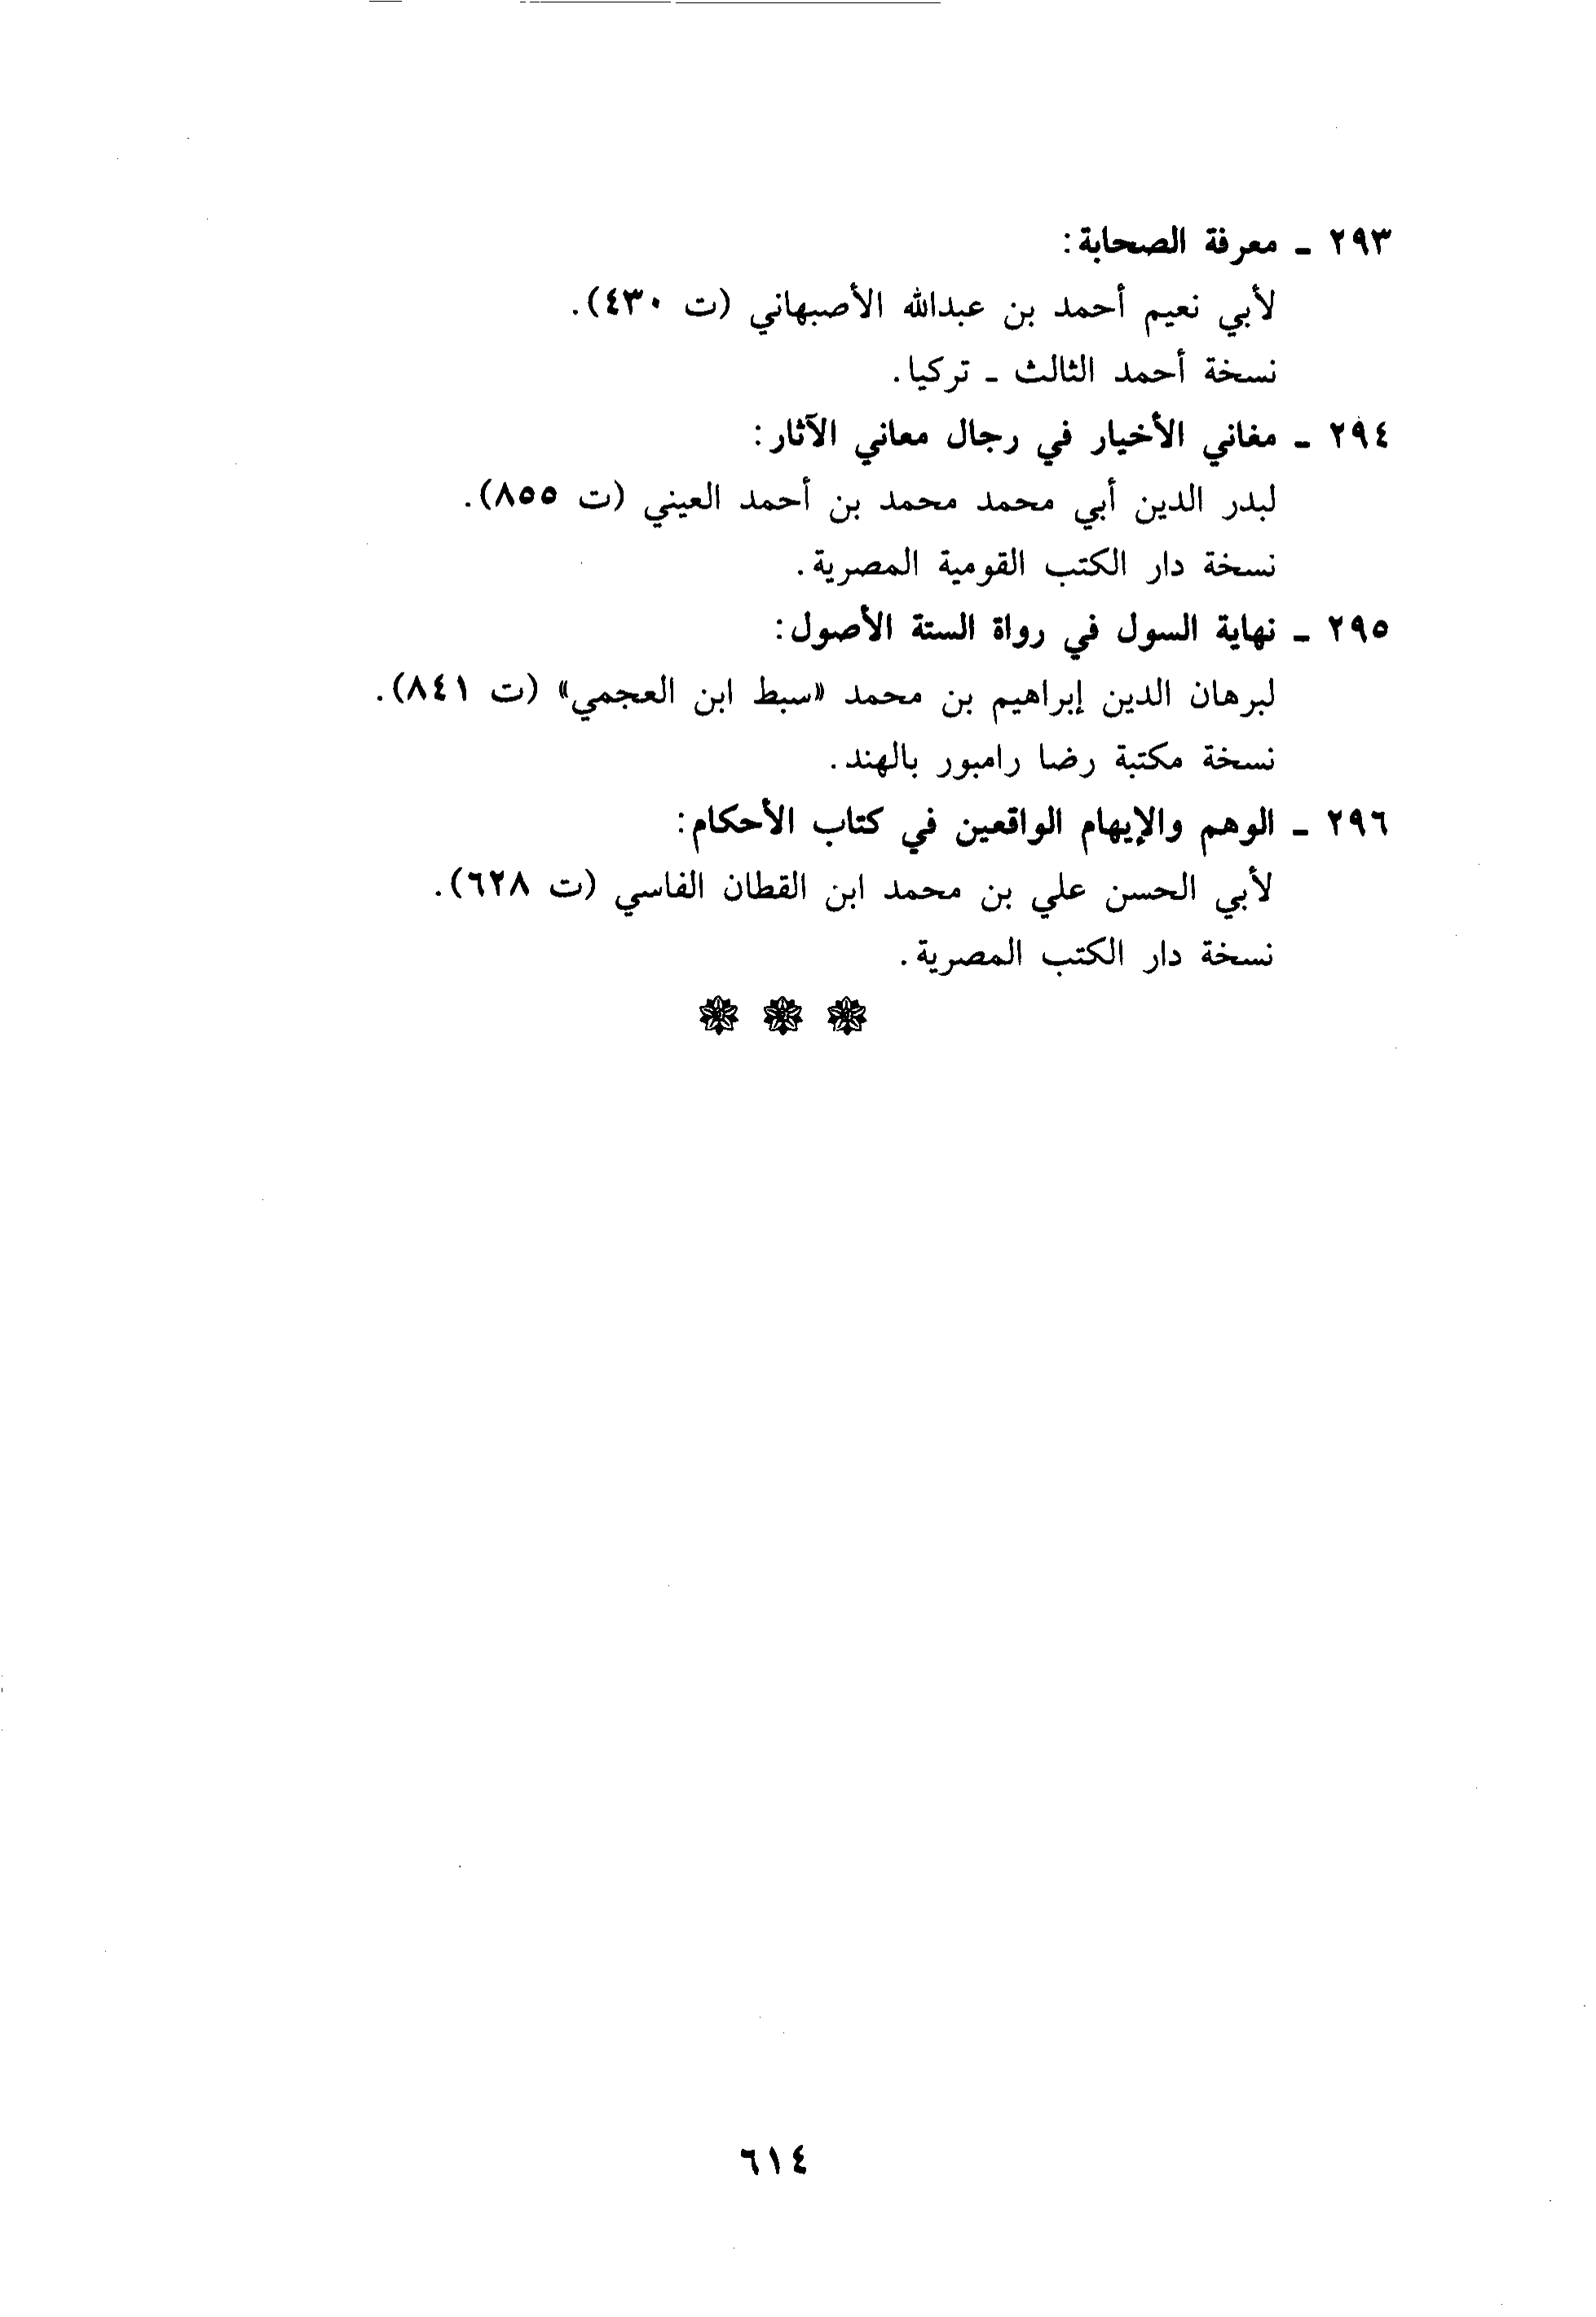 ٢٩٣ - معرفة الصحابة:
لأبي نعيم أحمد بن عبدالله الأصبهاني (ت ٤٣٠).
نسخة أحمد الثالث - تركيا.
٢٩٤ - مغاني الأخيار في رجال معاني الآثار:
لبدر الدين أبي محمد محمد بن أحمد العيني (ت ٨٥٥).
نسخة دار الكتب القومية المصرية.
٢٩٥ - نهاية السول في رواة الستة الأصول:
لبرهان الدين إبراهيم بن محمد «سبط ابن العجمي» (ت ٨٤١).
نسخة مكتبة رضا رامبور بالهند.
٢٩٦ - الوهم والإيهام الواقعين في كتاب الأحكام:
لأبي الحسن علي بن محمد ابن القطان الفاسي (ت ٦٢٨).
نسخة دار الكتب المصرية.
٦١٤